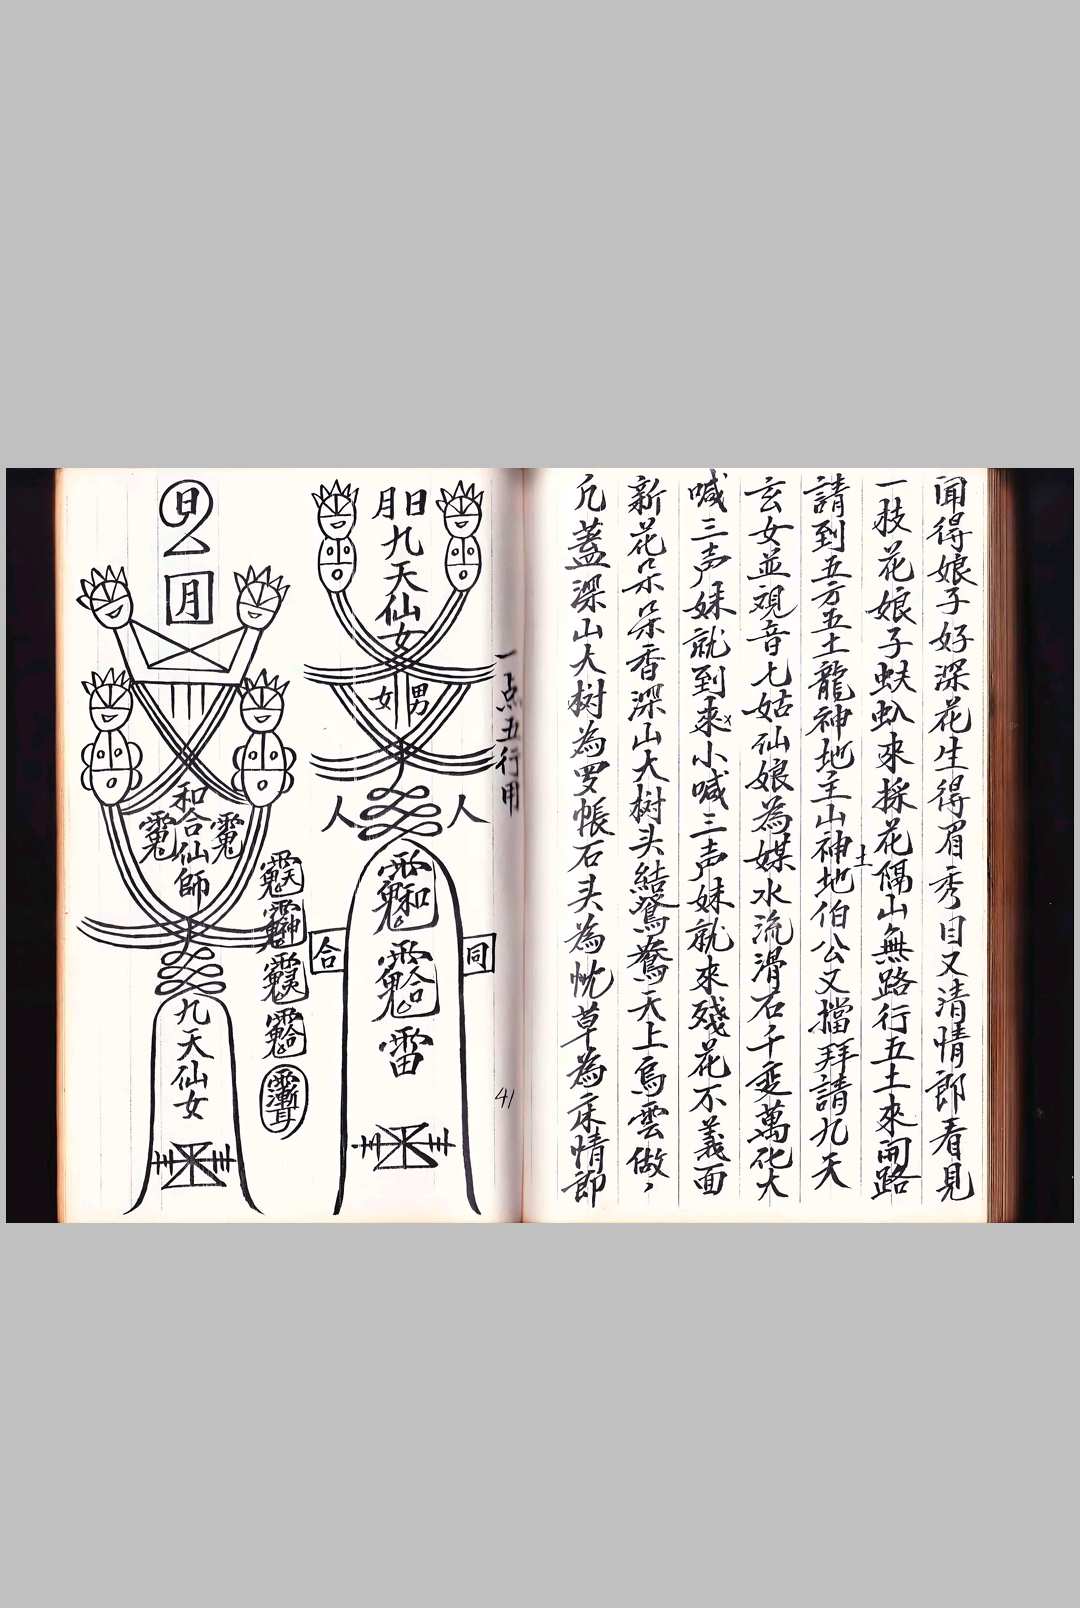 闻得娘子好深花生得眉秀目又清情郎看見
一枝花娘子蚨虯來採花隔山無路行五土來開路
請到五方五土龍神地主山神土地伯公又擋拜請九天
玄女並視音七姑仙娘為媒水流滑石千变萬化大
喊三声妹就到來小喊三声妹就來殘花不義面
新花朵朵香深山大树头結鴛鴦天上烏雲做
蓋深山大树為罗帳石头為枕草為床情郎
一点五行用
日月
九天仙女
男女
人 人
和
合
雷
合 同
41
日
月
和合仙師
九天仙女